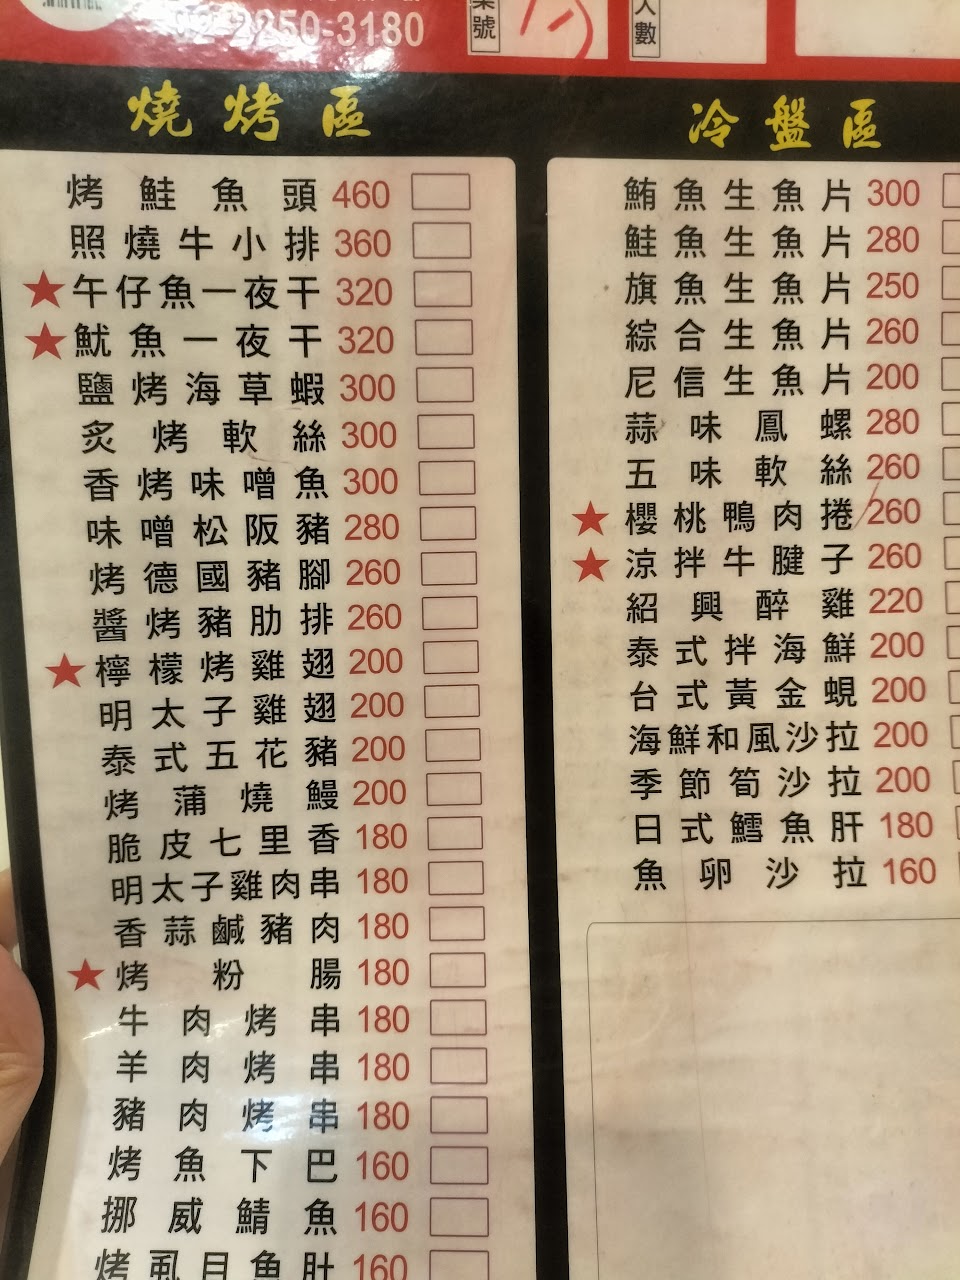 2250-3180
桌號
人數
燒烤區
烤鮭魚頭 460
照燒牛小排 360
★午仔魚一夜干 320
★魷魚一夜干 320
鹽烤海草蝦 300
炙烤軟絲 300
香烤味噌魚 300
味噌松阪豬 280
烤德國豬腳 260
醬烤豬肋排 260
★檸檬烤雞翅 200
明太子雞翅 200
泰式五花豬 200
烤蒲燒鰻 200
脆皮七里香 180
明太子雞肉串 180
香蒜鹹豬肉 180
★烤粉腸 180
牛肉烤串 180
羊肉烤串 180
豬肉烤串 180
烤魚下巴 160
挪威鯖魚 160
烤虱目魚肚 160
冷盤區
鮪魚生魚片 300
鮭魚生魚片 280
旗魚生魚片 250
綜合生魚片 260
尼信生魚片 200
蒜味鳳螺 280
五味軟絲 260
★櫻桃鴨肉捲 260
★涼拌牛腱子 260
紹興醉雞 220
泰式拌海鮮 200
台式黃金蜆 200
海鮮和風沙拉 200
季節筍沙拉 200
日式鱈魚肝 180
魚卵沙拉 160